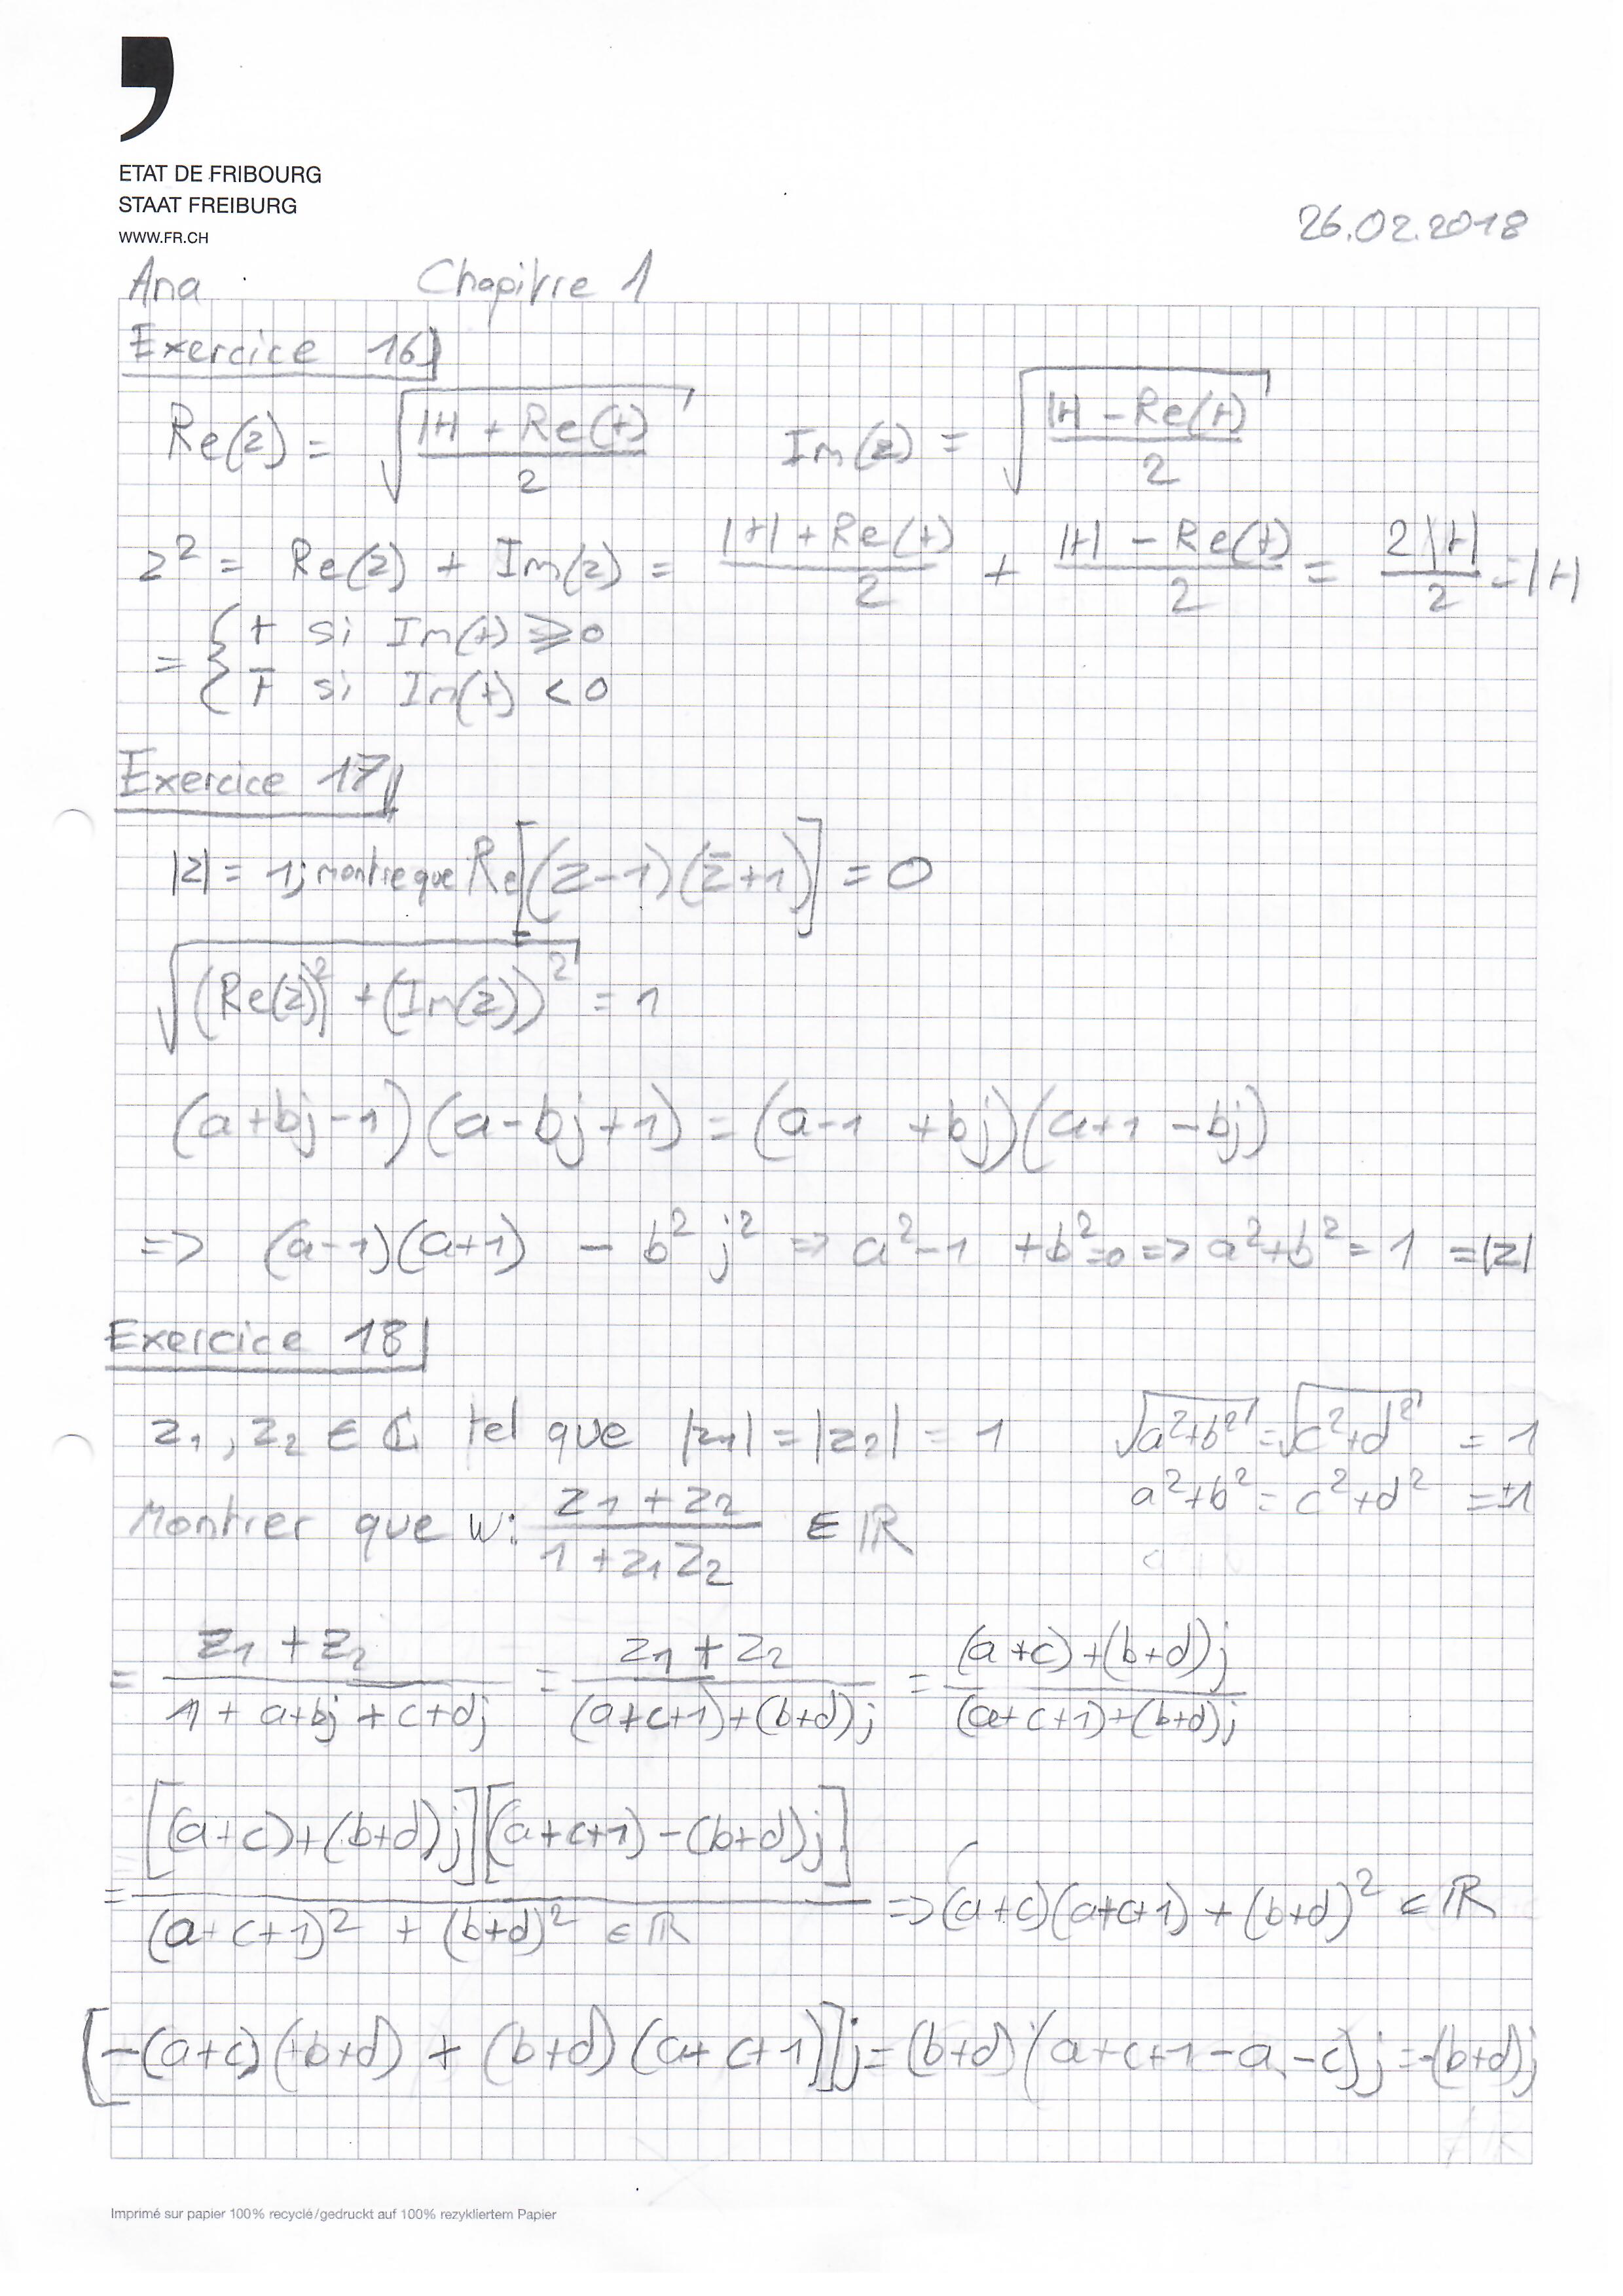 ETAT DE FRIBOURG
STAAT FREIBURG
WWW.FR.CH
26.02.2018
Ana Chapitre 1
Exercice 16)
Re(z) = √((|t| + Re(t))/2) Im(z) = √((|t| - Re(t))/2)
z² = Re(z) + Im(z) = (|t| + Re(t))/2 + (|t| - Re(t))/2 = 2|t|/2 = |t|
= { t si Im(t) ⩾ 0
t̄ si Im(t) < 0
Exercice 17
|z| = 1; montre que Re[(z-1)(z̄+1)] = 0
√((Re(z))² + (Im(z))²) = 1
(a+bj-1)(a-bj+1) = (a-1 +bj)(a+1 -bj)
=> (a-1)(a+1) - b² j² => a²-1 +b²=0 => a²+b² = 1 = |z|
Exercice 18
z₁, z₂ ∈ ℂ tel que |z₁| = |z₂| = 1 √(a²+b²) = √(c²+d²) = 1
a²+b² = c²+d² = ±1
Montrer que w: (z₁ + z₂)/(1 + z₁ z₂) ∈ ℝ
= (z₁ + z₂)/(1 + a+bj + c+dj) = (z₁ + z₂)/((a+c+1)+(b+d)j) = ((a+c)+(b+d)j)/((a+c+1)+(b+d)j)
= [(a+c)+(b+d)j][(a+c+1)-(b+d)j]/((a+c+1)² + (b+d)² ∈ ℝ) => (a+c)(a+c+1) + (b+d)² ∈ ℝ
[-(a+c)(+b+d) + (b+d)(a+c+1)]j = (b+d)(a+c+1-a-c)j = -(b+d)j
Imprimé sur papier 100% recyclé/gedruckt auf 100% rezykliertem Papier